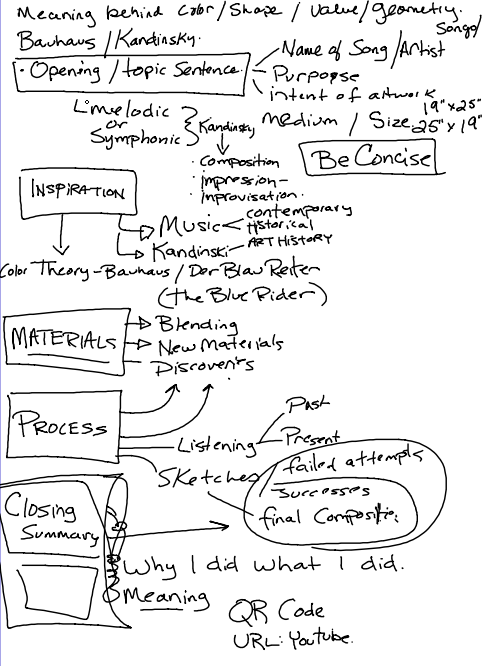 Meaning behind Color/Shape/Value/Geometry.
Songs/
Bauhaus/Kandinsky.
Name of Song/Artist
· Opening/topic Sentence
Purpose
intent of artwork
Melodic
or
Symphonic
Kandinsky
medium / Size 19"x25"
25"x19"
Be Concise
· Composition
· impression-
· improvisation.
INSPIRATION
Music
contemporary
Historical
Kandinski
ART HISTORY
Color Theory-Bauhaus/Der Blau Reiter
(the Blue Rider)
MATERIALS
Blending
New Materials
Discoveries
PROCESS
Listening
Past
Present
Sketches
failed attempts
successes
final Composition
Closing
Summary
Why I did what I did.
Meaning
QR Code
URL: Youtube.